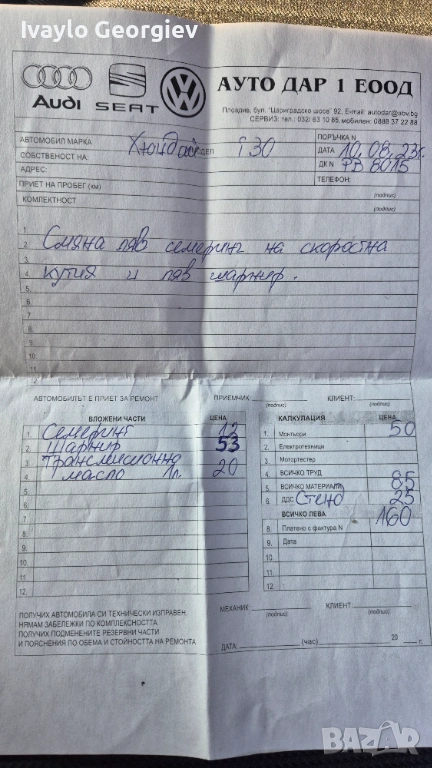 Ivaylo Georgiev
Audi SEAT
АУТО ДАР 1 ЕООД
Пловдив, бул. "Цариградско шосе" 92, E-mail: autodar@abv.bg
СЕРВИЗ: тел.: 032/ 63 10 85, мобилен: 0888 37 22 88
АВТОМОБИЛ МАРКА Хюндай МОДЕЛ i30 ПОРЪЧКА N
СОБСТВЕНОСТ НА: ДАТА 10.08.23г.
АДРЕС: ДК N РВ 8015
ПРИЕТ НА ПРОБЕГ (км) ТЕЛЕФОН:
(подпис)
КОМПЛЕКТНОСТ
(подпис)
1
2 Смяна ляв семеринг на скоростна
3
4 кутия и ляв шарнир.
5
6
7
8
9
10
11
АВТОМОБИЛЪТ Е ПРИЕТ ЗА РЕМОНТ ПРИЕМЧИК: КЛИЕНТ:
(подпис) (подпис)
ВЛОЖЕНИ ЧАСТИ ЦЕНА КАЛКУЛАЦИЯ ЦЕНА
1. Семеринг 12 1. Монтьори 50
2. Шарнир 53 2. Електротехници
3. Трансмисионно 3. Мотортестер
4. масло 1л. 20 4. ВСИЧКО ТРУД
5. 5. ВСИЧКО МАТЕРИАЛИ 85
6. 6. ДДС Стенд 25
7. ВСИЧКО ЛЕВА 160
8. 8. Платено с фактура N
9. 9. Дата
10. 10.
11. 11.
12. 12.
ПОЛУЧИХ АВТОМОБИЛА СИ ТЕХНИЧЕСКИ ИЗПРАВЕН. МЕХАНИК КЛИЕНТ
НЯМАМ ЗАБЕЛЕЖКИ ПО КОМПЛЕКСНОСТТА (подпис) (подпис)
ПОЛУЧИХ ПОДМЕНЕНИТЕ РЕЗЕРВНИ ЧАСТИ
И ПОЯСНЕНИЯ ПО ОБЕМА И СТОЙНОСТТА НА РЕМОНТА ДАТА: (час) 20 г.
BAZAR